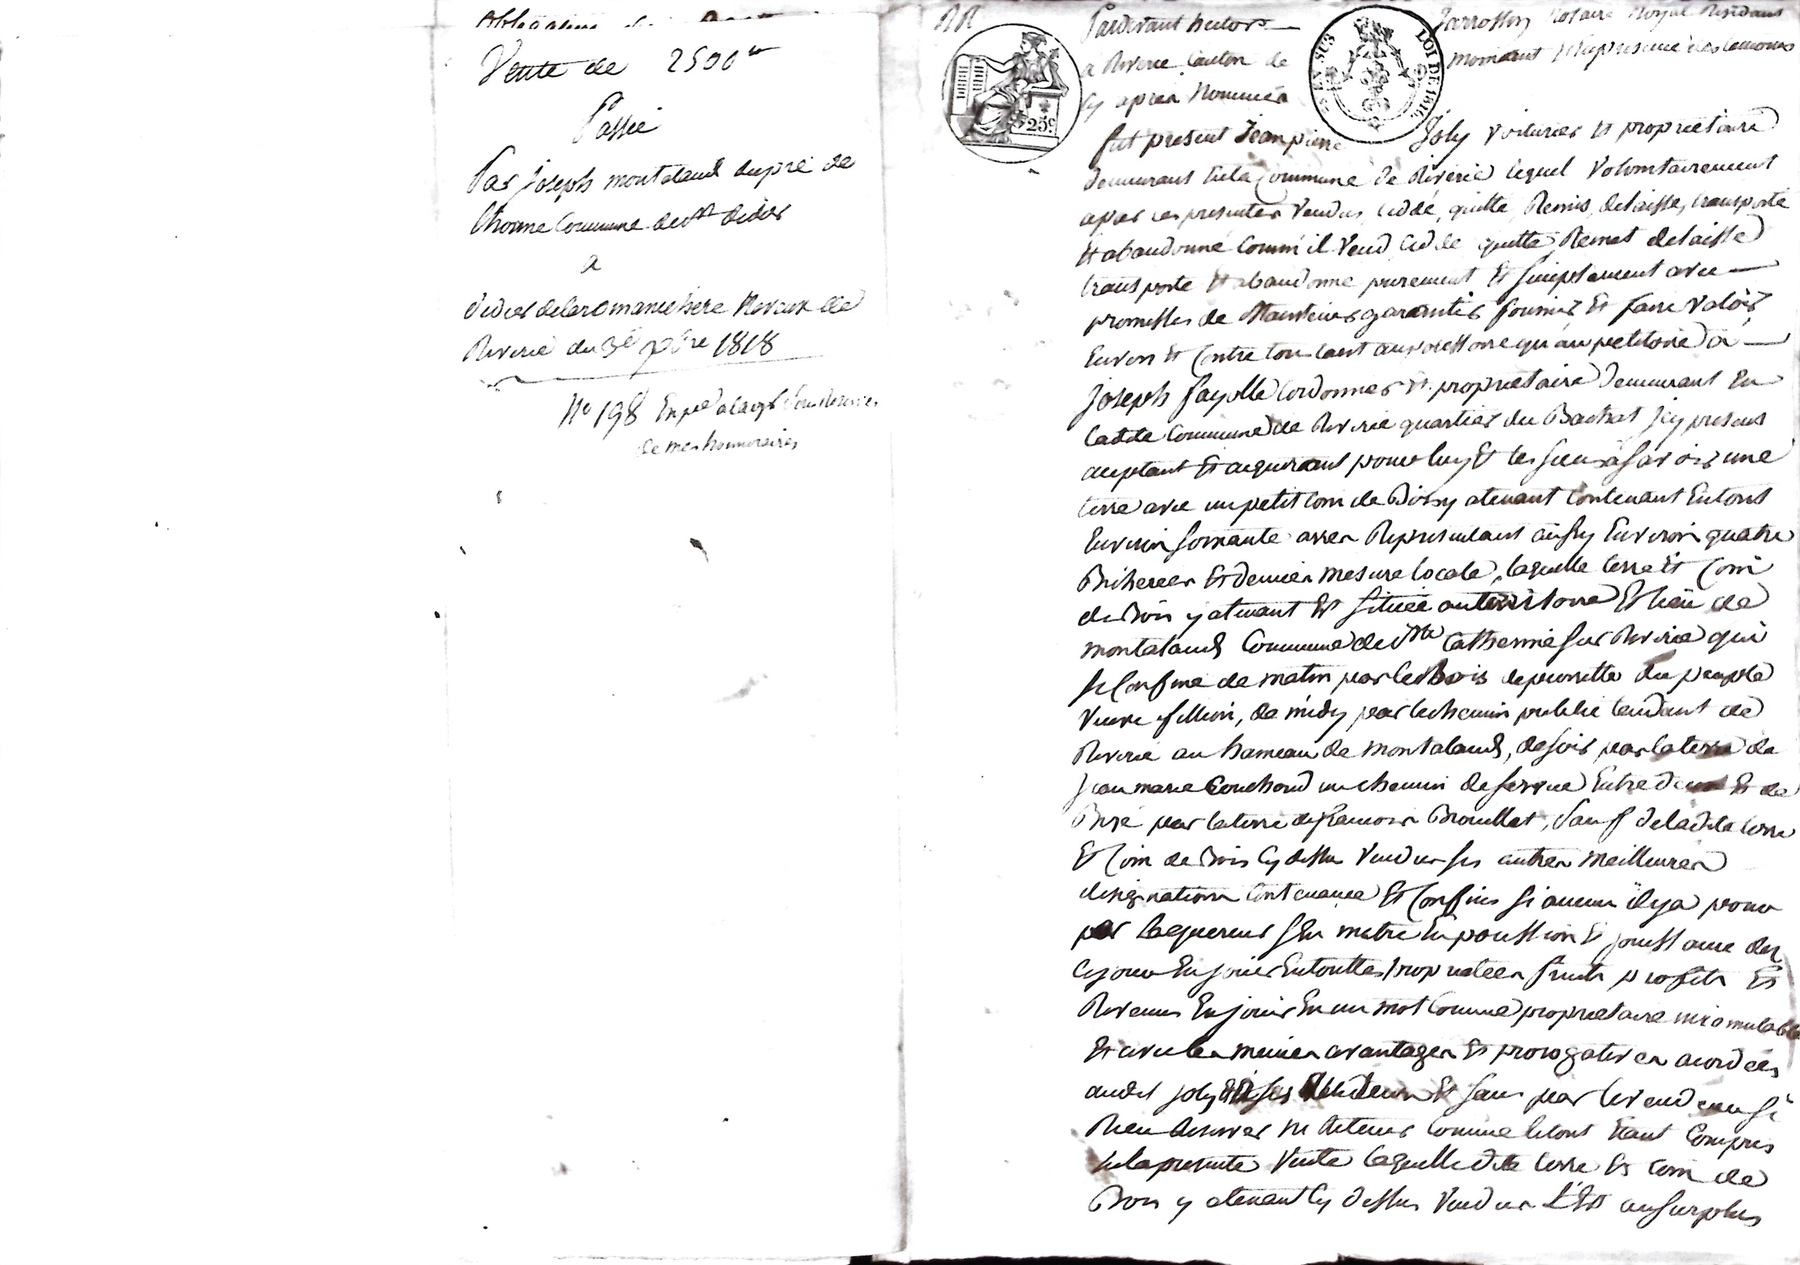 Vente de 2500
Passée
Par Joseph montaland dupré de
Commune de st didier
a
didier delaromanchere
Riverie du 3e 1818
No 198
de mes honnoraires
25c
EN SUS
LOI DE 1816
Pardevant hector
Jarrosson Notaire Royal Residant
a Riverie Canton de
mornant Et En presence des temoins
Cy apres Nommés
fut present Jean pierre
Joly Voiturier Et proprietaire
demeurant En la Commune de Riverie lequel Volontairement
a par ces presentes Vendus, Cedde, quitte, Remis, delaisse, transporté
Et abandonné Comm'il Vend Cedde quitte Remet delaisse
transporte Et abandonne purement Et simplement avec
promesses de Maintenir garantir fournir Et faire Valoir
Envers Et Contre tous tant au possessoire qu'au petitoire a
Joseph fayolle Cordonnier Et proprietaire demeurant En
ladite Commune de Riverie quartier du Bachat Icy present
aceptant Et aquerant pour luy Et les siens a savoir une
terre avec un petit Coin de Bois y atenant Contenant En tout
Environ soixante ares Representant ausy Environ quatre
Bicherées Et demies mesure locale, laquelle terre Et Coin
de Bois y atenant Est située au territoire Et lieu de
montaland Commune de Ste Catherine sur Riverie qui
se Confine de matin par le Bois de pierrette du peuple
Veuve fillion, de midy par le chemin public tendant de
Riverie au hameau de montaland, de soir par la terre de
Jean marie Couchoud un chemin de service Entre deux Et de
Bise par la terre de francois Brouillet, sauf de ladite terre
Et Coin de Bois Cy dessus Vendus ses autres meilleures
designations Contenance Et Confins si aucun il y a pour
par laquereur s'En mettre En possession Et jouissance des
Ce jour En jouir En toutte proprietées fruits profits Et
Revenus En jouir En un mot Comme proprietaire incomutable
Et avec les mêmes avantages Et prerogatives acordées
audit joly Et a ses Et sans par le Vendeur si
Rien Reserver ni Retenir Comme le tout Etant Compris
En la presente Vente laquelle dite terre Et Coin de
Bois y atenant Cy dessus Vendus Est au surplus